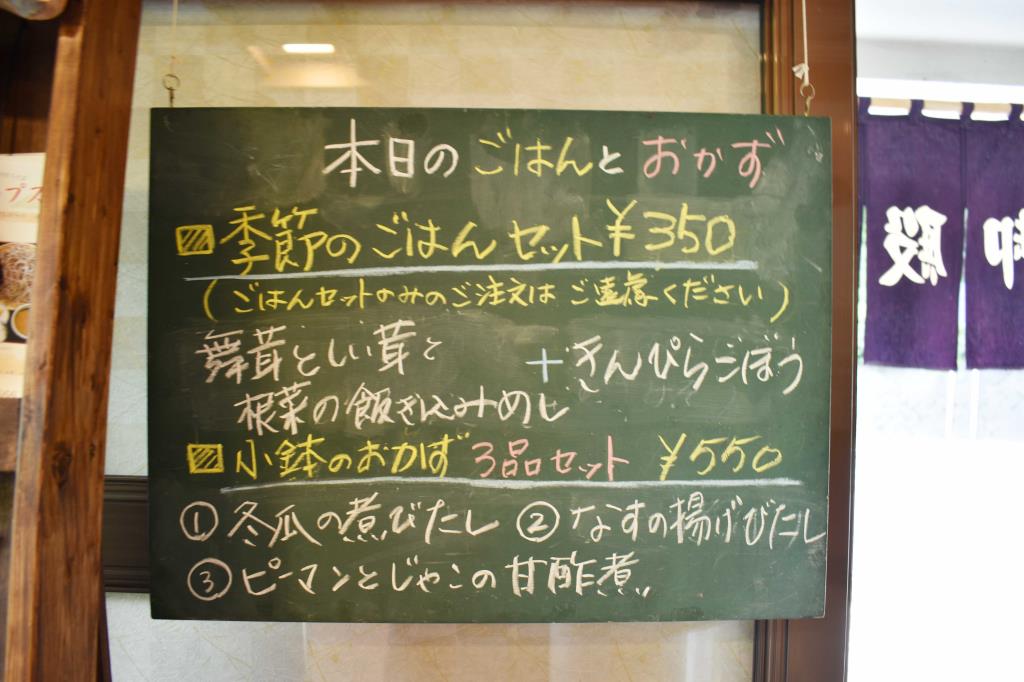 本日のごはんとおかず
季節のごはんセット¥350
(ごはんセットのみのご注文はご遠慮ください)
舞茸としい茸と
根菜の飯き込みめし
+きんぴらごぼう
小鉢のおかず 3品セット ¥550
①冬瓜の煮びたし ②なすの揚げびたし
③ピーマンとじゃこの甘酢煮
殿
御
プス